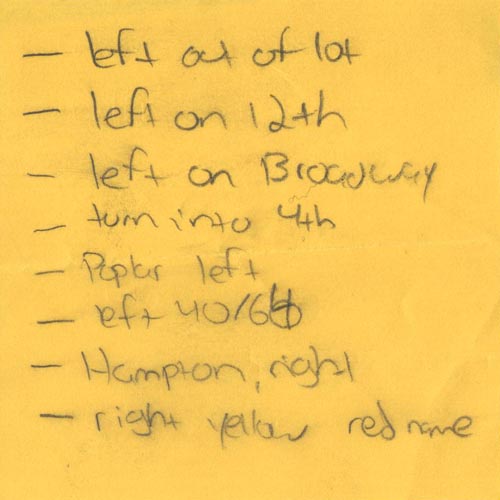 - left out of lot
- left on 12th
- left on Broadway
- turn into 4th
- Poplar left
- left 40/64
- Hampton, right
- right yellow red name